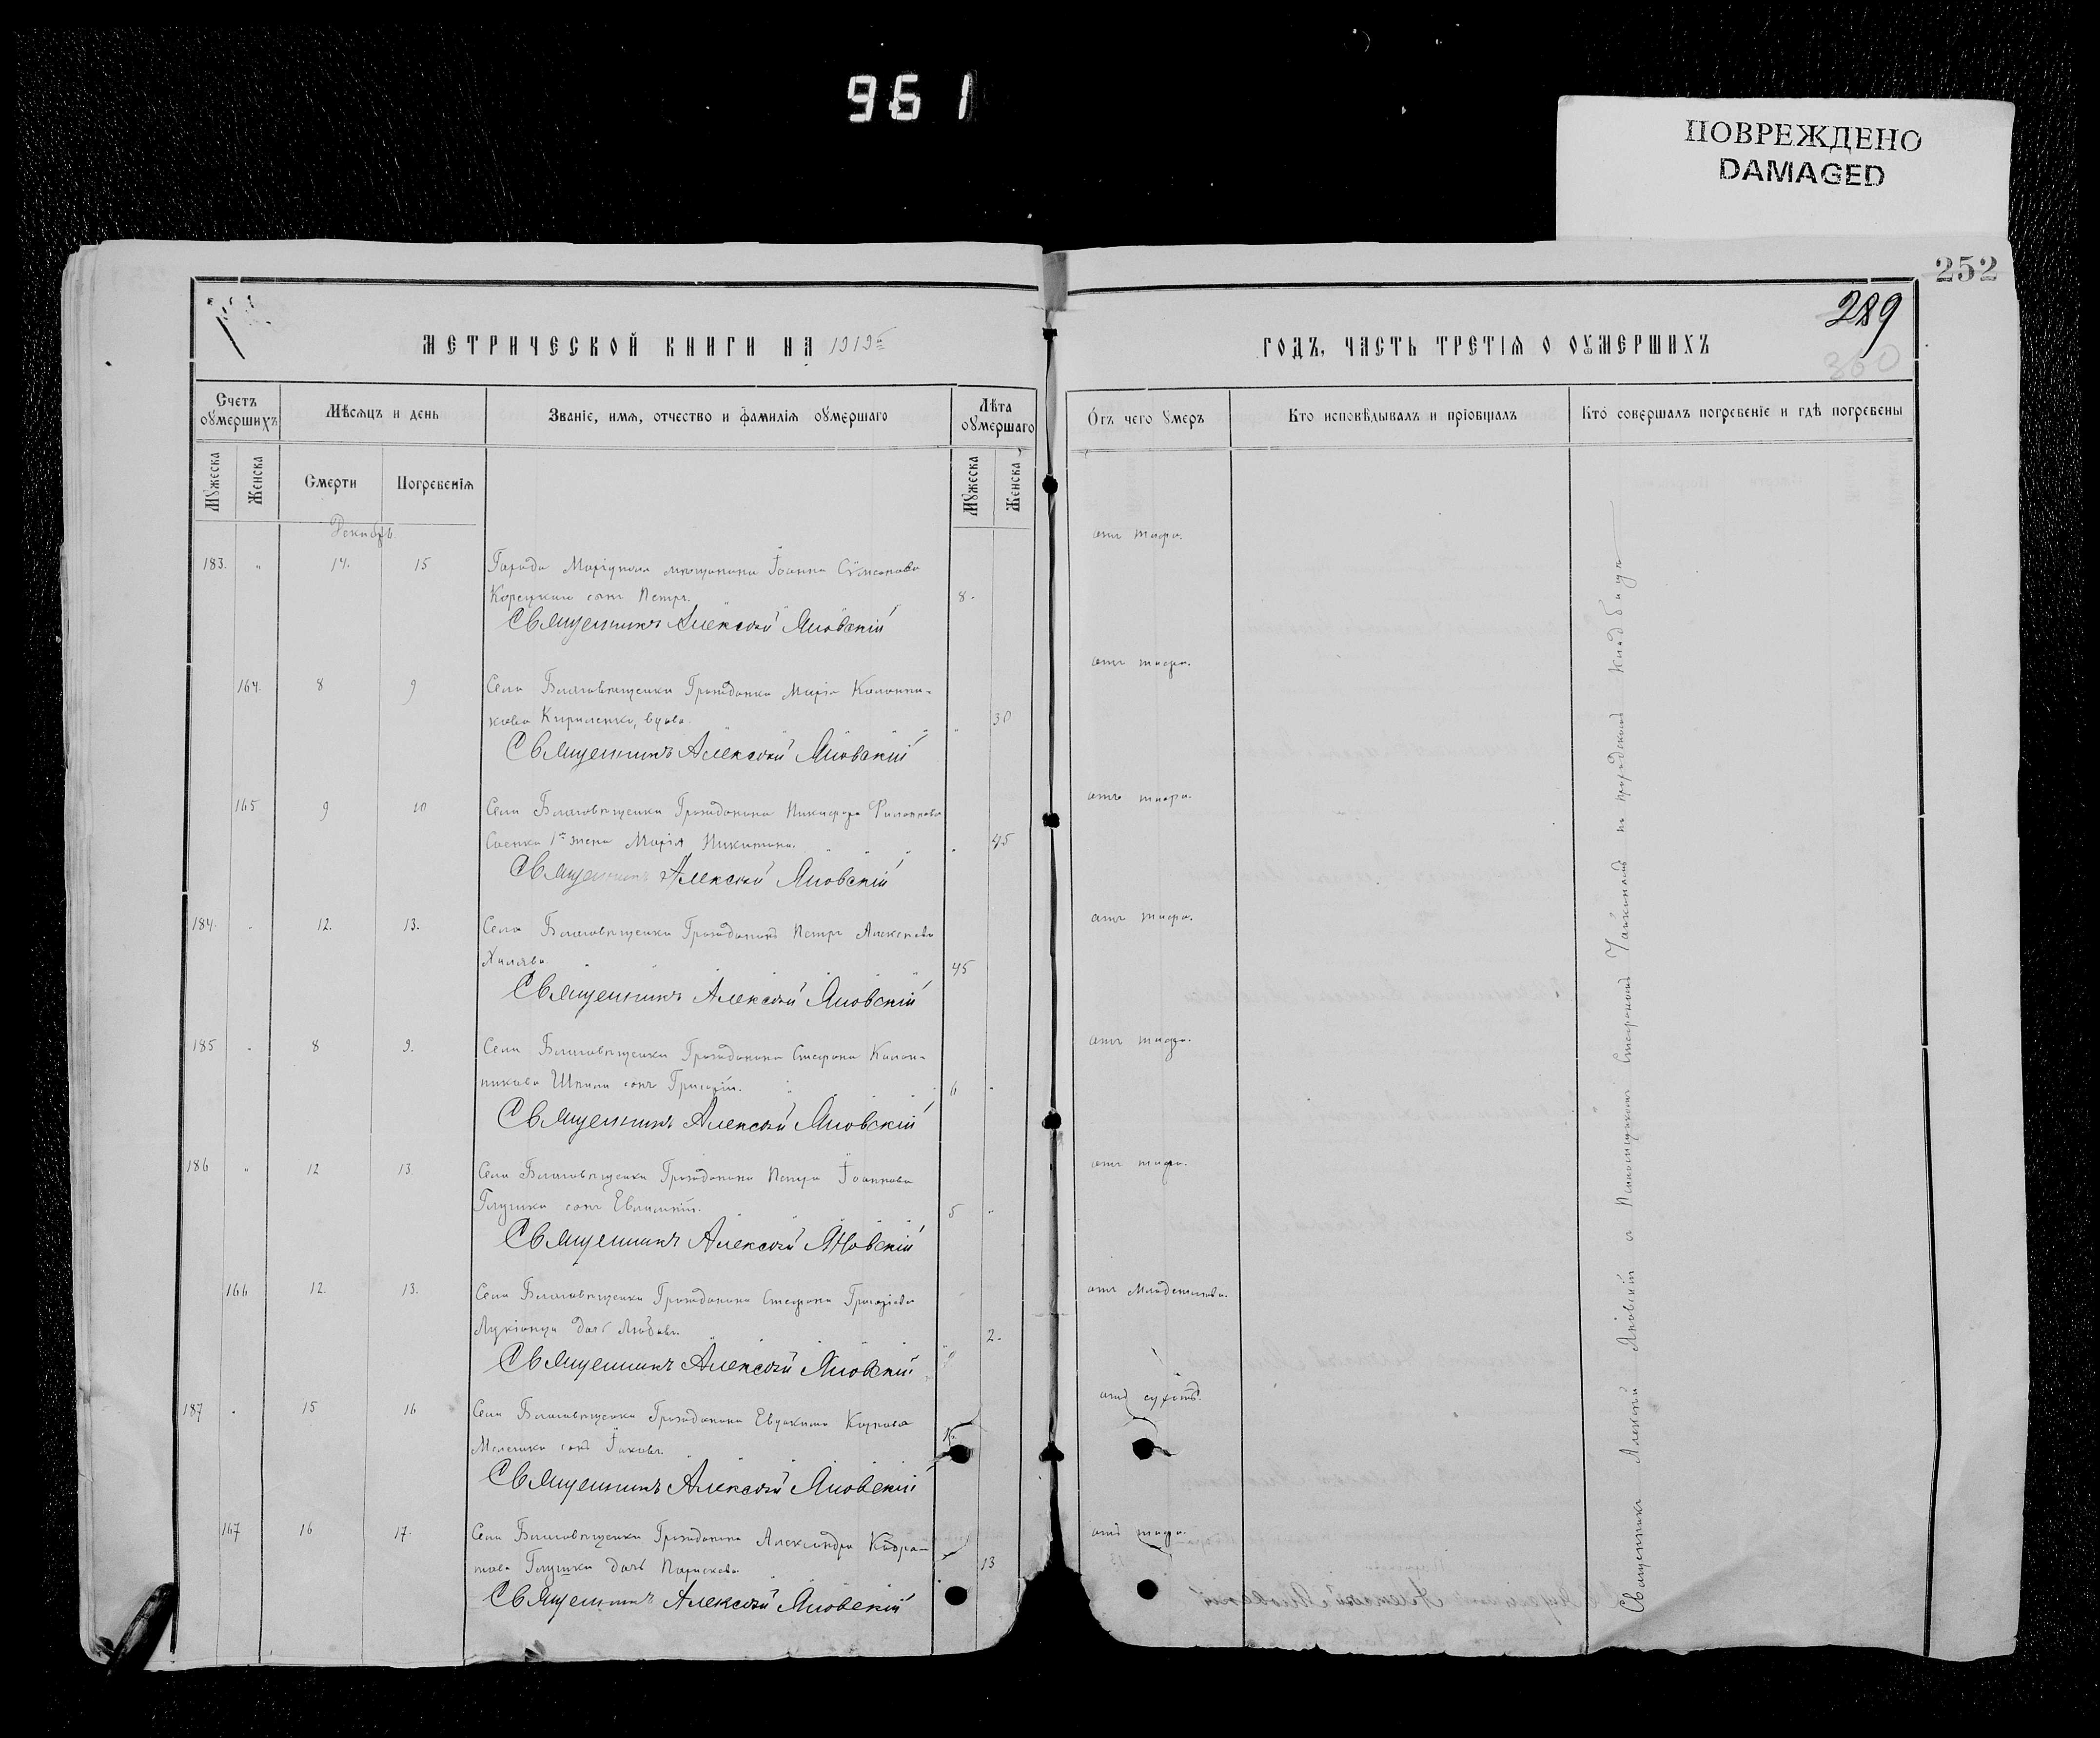 961
ПОВРЕЖДЕНО
DAMAGED
252
289
360
МЕТРИЧЕСКОЙ КНИГИ НА 1919й
ГОДЪ, ЧАСТЬ ТРЕТІѦ О ОУМЕРШИХЪ
Счетъ оумершихъ
Мѣсяцъ и день
Званіе, имя, отчество и фамилія оумершаго
Лѣта оумершаго
Отъ чего умеръ
Кто исповѣдывалъ и пріобщалъ
Кто совершалъ погребеніе и гдѣ погребены
Мужеска
Женска
Смерти
Погребенія
Мужеска
Женска
Декабрь
183. " 14. 15 Города Маріуполя мещанина Іоанна Сѵмеонова отъ тифа.
Корецкаго сынъ Петръ. 8.
Священникъ Алексѣй Яновскій
164. 8 9 Села Благовѣщенки Гражданка Марія Каллини- отъ тифа.
кова Кириленко, вдова. " 30
Священникъ Алексѣй Яновскій
165 9 10 Села Благовѣщенки Гражданина Никифора Филиппова отъ тифа.
Саенко 1я жена Марія Никитина. 45
Священникъ Алексѣй Яновскій
184. 12. 13. Села Благовѣщенки Гражданинъ Петръ Алексеевъ отъ тифа.
45
Священникъ Алексѣй Яновскій
185 8 9. Села Благовѣщенки Гражданина Стефана Калли- отъ тифа.
никова сынъ Григорій. 6
Священникъ Алексѣй Яновскій
186 " 12 13 Села Благовѣщенки Гражданина Петра Іоаннова отъ тифа.
Глушка сынъ Евлампій. 5 "
Священникъ Алексѣй Яновскій
166 12. 13. Села Благовѣщенки Гражданина Стефана Григоріева отъ младенчества.
Лукіянца дочь Любовь. 2.
Священникъ Алексѣй Яновскій
187 15 16 Села Благовѣщенки Гражданина Евдокима Карпова отъ сухотъ.
сынъ Іаковъ.
Священникъ Алексѣй Яновскій
167 16 17. Села Благовѣщенки Гражданина Александра Кодра- отъ тифа.
това Глушка дочь Параскева. 13
Священникъ Алексѣй Яновскій
Священникъ Алексѣй Яновскій съ Псаломщикомъ Стефаномъ Чайкинымъ на приходскомъ кладбищѣ